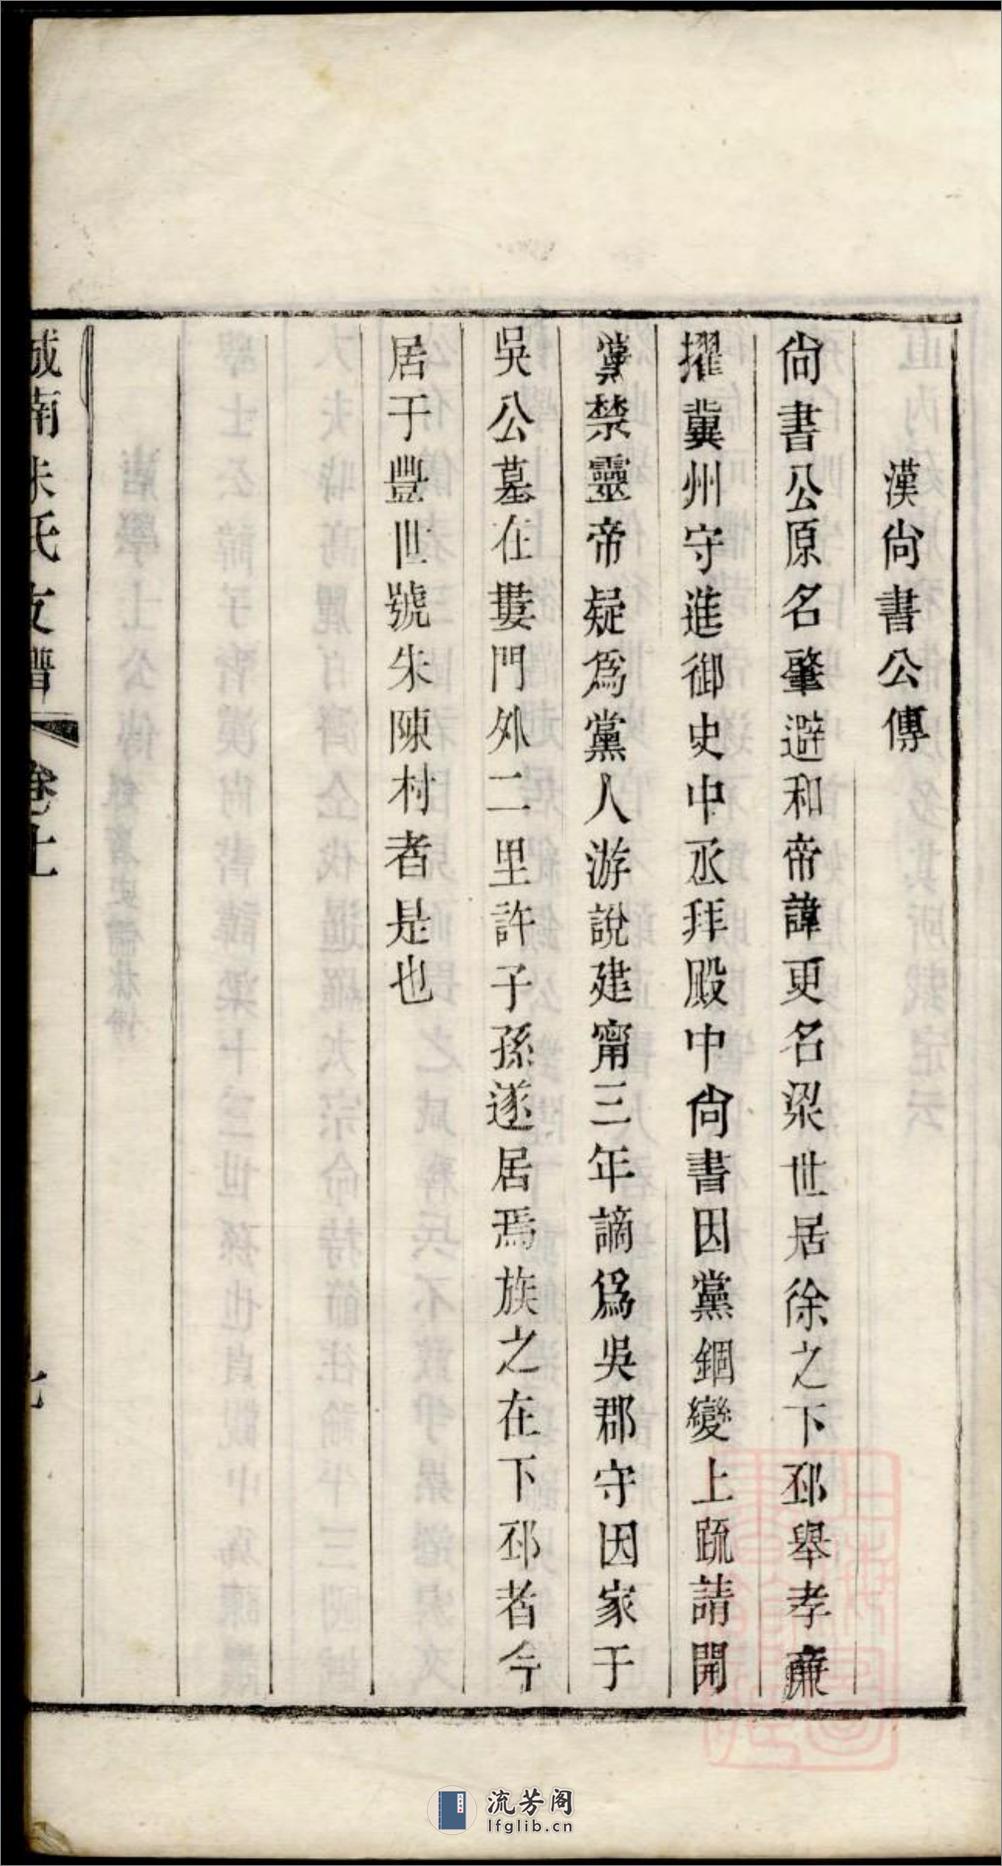 漢尙書公傳
尙書公原名肇避和帝諱更名梁世居徐之下邳舉孝廉
擢冀州守進御史中丞拜殿中尙書因黨錮變上疏請開
黨禁靈帝疑爲黨人游說建甯三年謫爲吳郡守因家于
吳公墓在婁門外二里許子孫遂居焉族之在下邳者今
居于豐世號朱陳村者是也
城南朱氏支譜
卷十
七
流芳阁
lfglib.cn